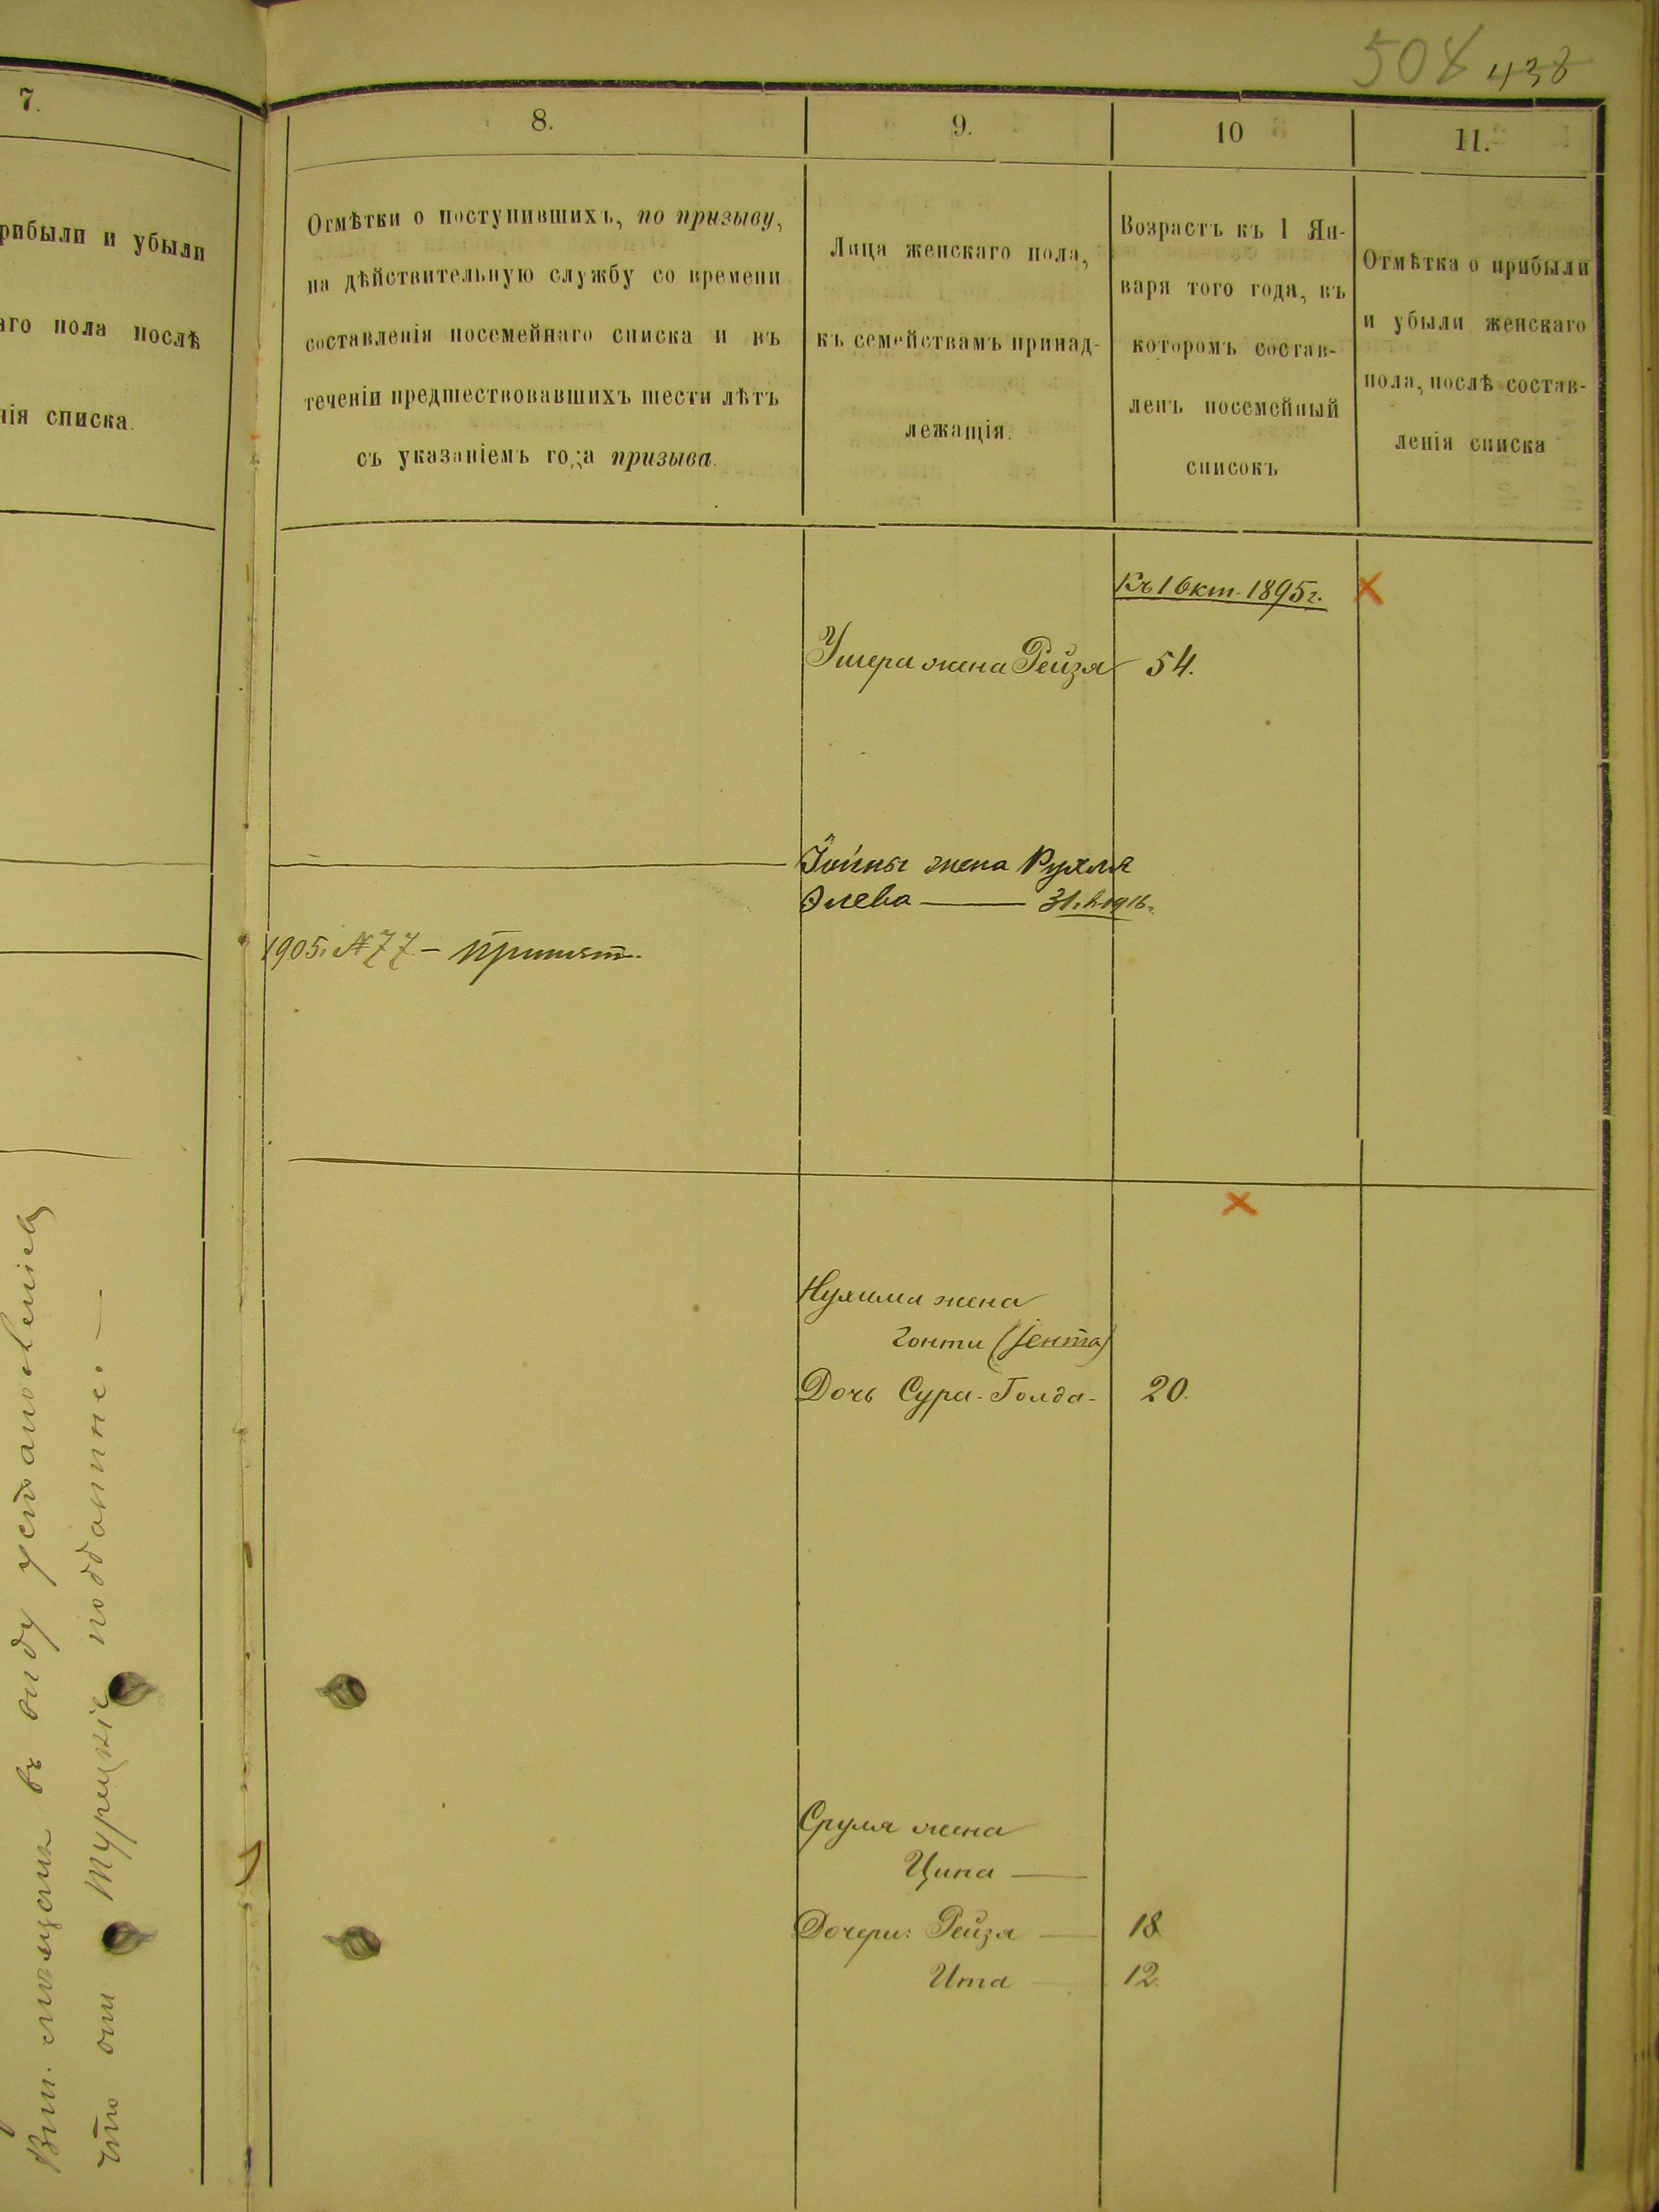 508 438
7.
рибыли и убыли
аго пола послѣ
нія списка.
8.
Отмѣтки о поступившихъ, по призыву,
на дѣйствительную службу со времени
составленія посемейнаго списка и въ
теченіи предшествовавшихъ шести лѣтъ
съ указаніемъ года призыва.
9.
Лица женскаго пола,
къ семействамъ принад-
лежащія.
10
Возрастъ къ 1 Ян-
варя того года, въ
которомъ состав-
ленъ посемейный
списокъ
11.
Отмѣтка о прибыли
и убыли женскаго
пола, послѣ состав-
ленія списка
Къ 1 Окт. 1895 г.
Ушера жена Рейзя 54.
Іойны жена Рухля
Элева 1916 г.
1905 г. № 77 – принят.
Нухима жена
Гонти (Јента)
Дочь Сура-Голда- 20.
Сруля жена
Ципа
Дочери: Рейзя 18
Ита 12.
мѣщанин въ виду
что они Турецкіе подданные.